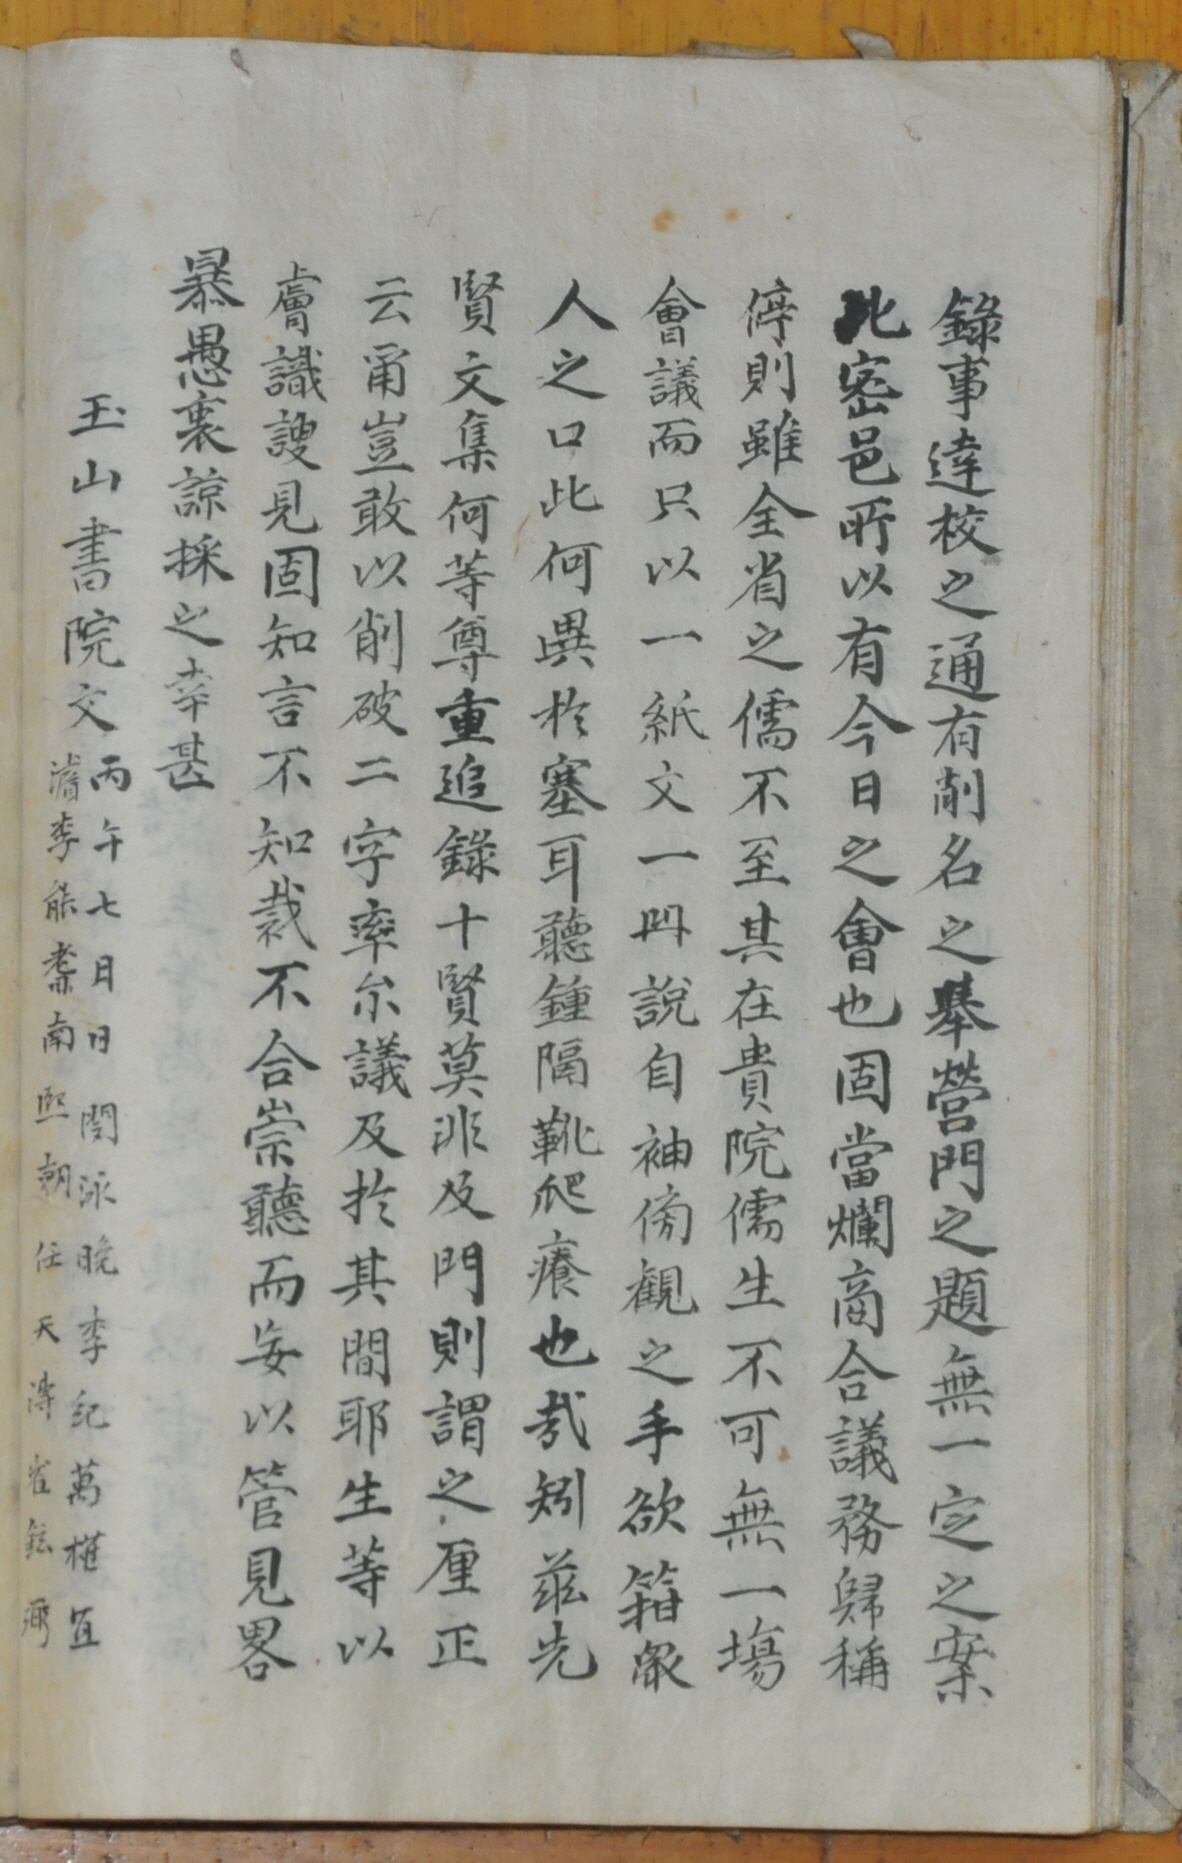 錄事達校之通有削名之擧營門之題無一定之案
此密邑所以有今日之會也固當爛商合議務歸稱
停則雖全省之儒不至其在貴院儒生不可無一塲
會議而只以一紙文一冊說自袖傍觀之手欲箝衆
人之口此何異於塞耳聽鍾隔靴爬癢也哉矧茲先
賢文集何等尊重追錄十賢莫非及門則謂之厘正
云甭豈敢以削破二字率尒議及於其間耶生等以
膚識謏見固知言不知裁不合崇聽而妄以管見畧
暴愚裏諒採之幸甚
玉山書院文
丙午七月日 閔泳晩 李紀萬 權宜
濬 李能蓍 南熙朝 任天溥 崔鉉弼